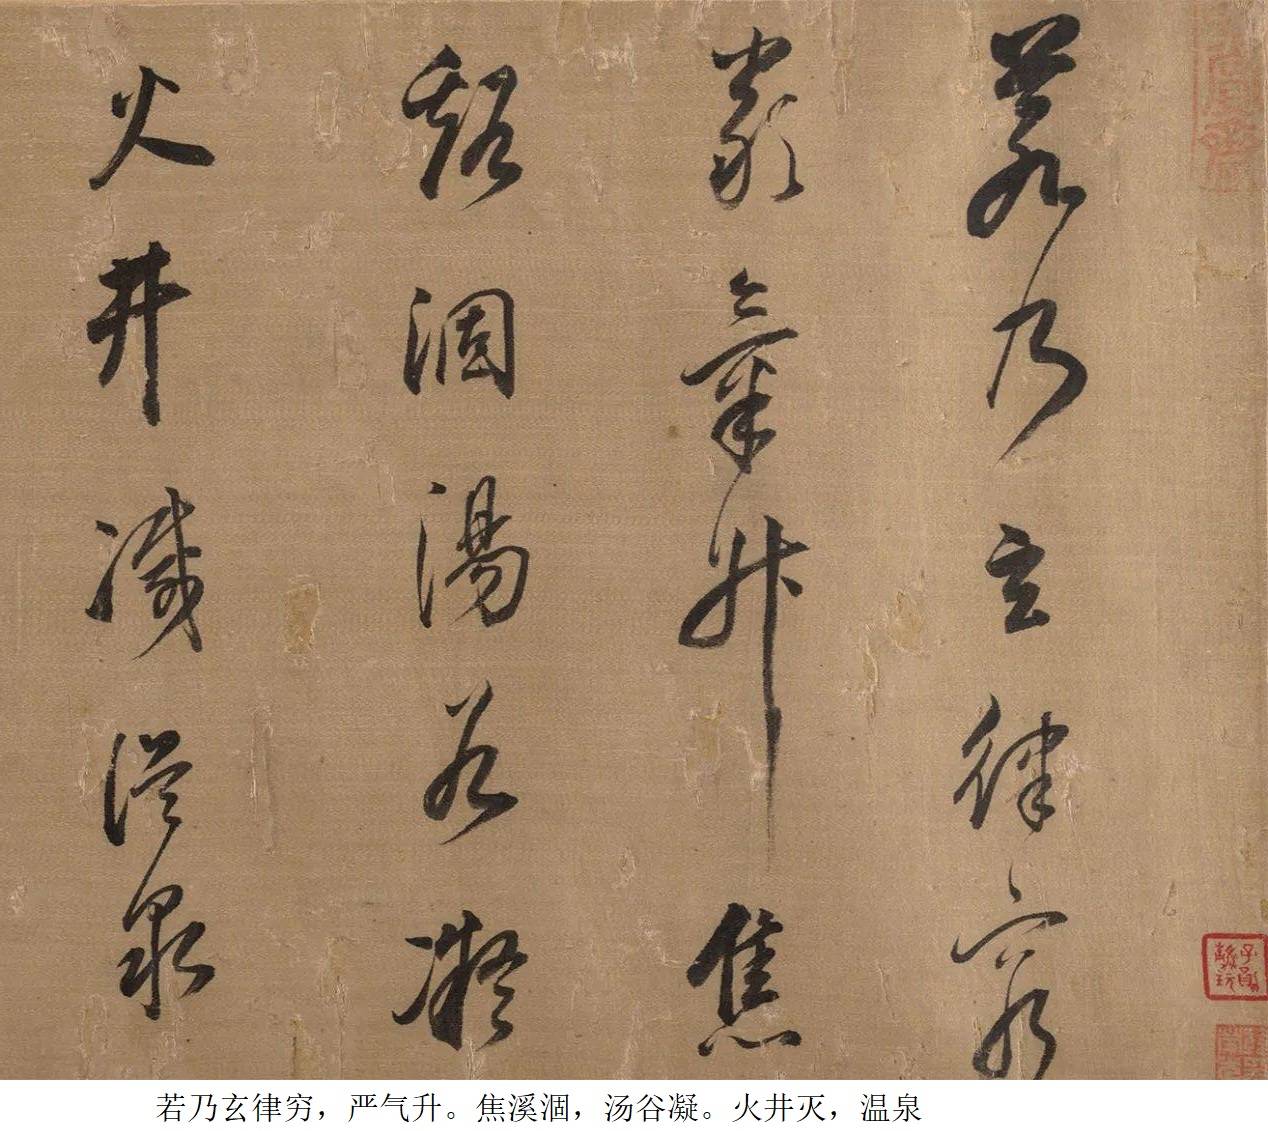 若乃玄律窮
嚴氣升焦
谿涸湯谷凝
火井滅溫泉
若乃玄律穷，严气升。焦溪涸，汤谷凝。火井灭，温泉